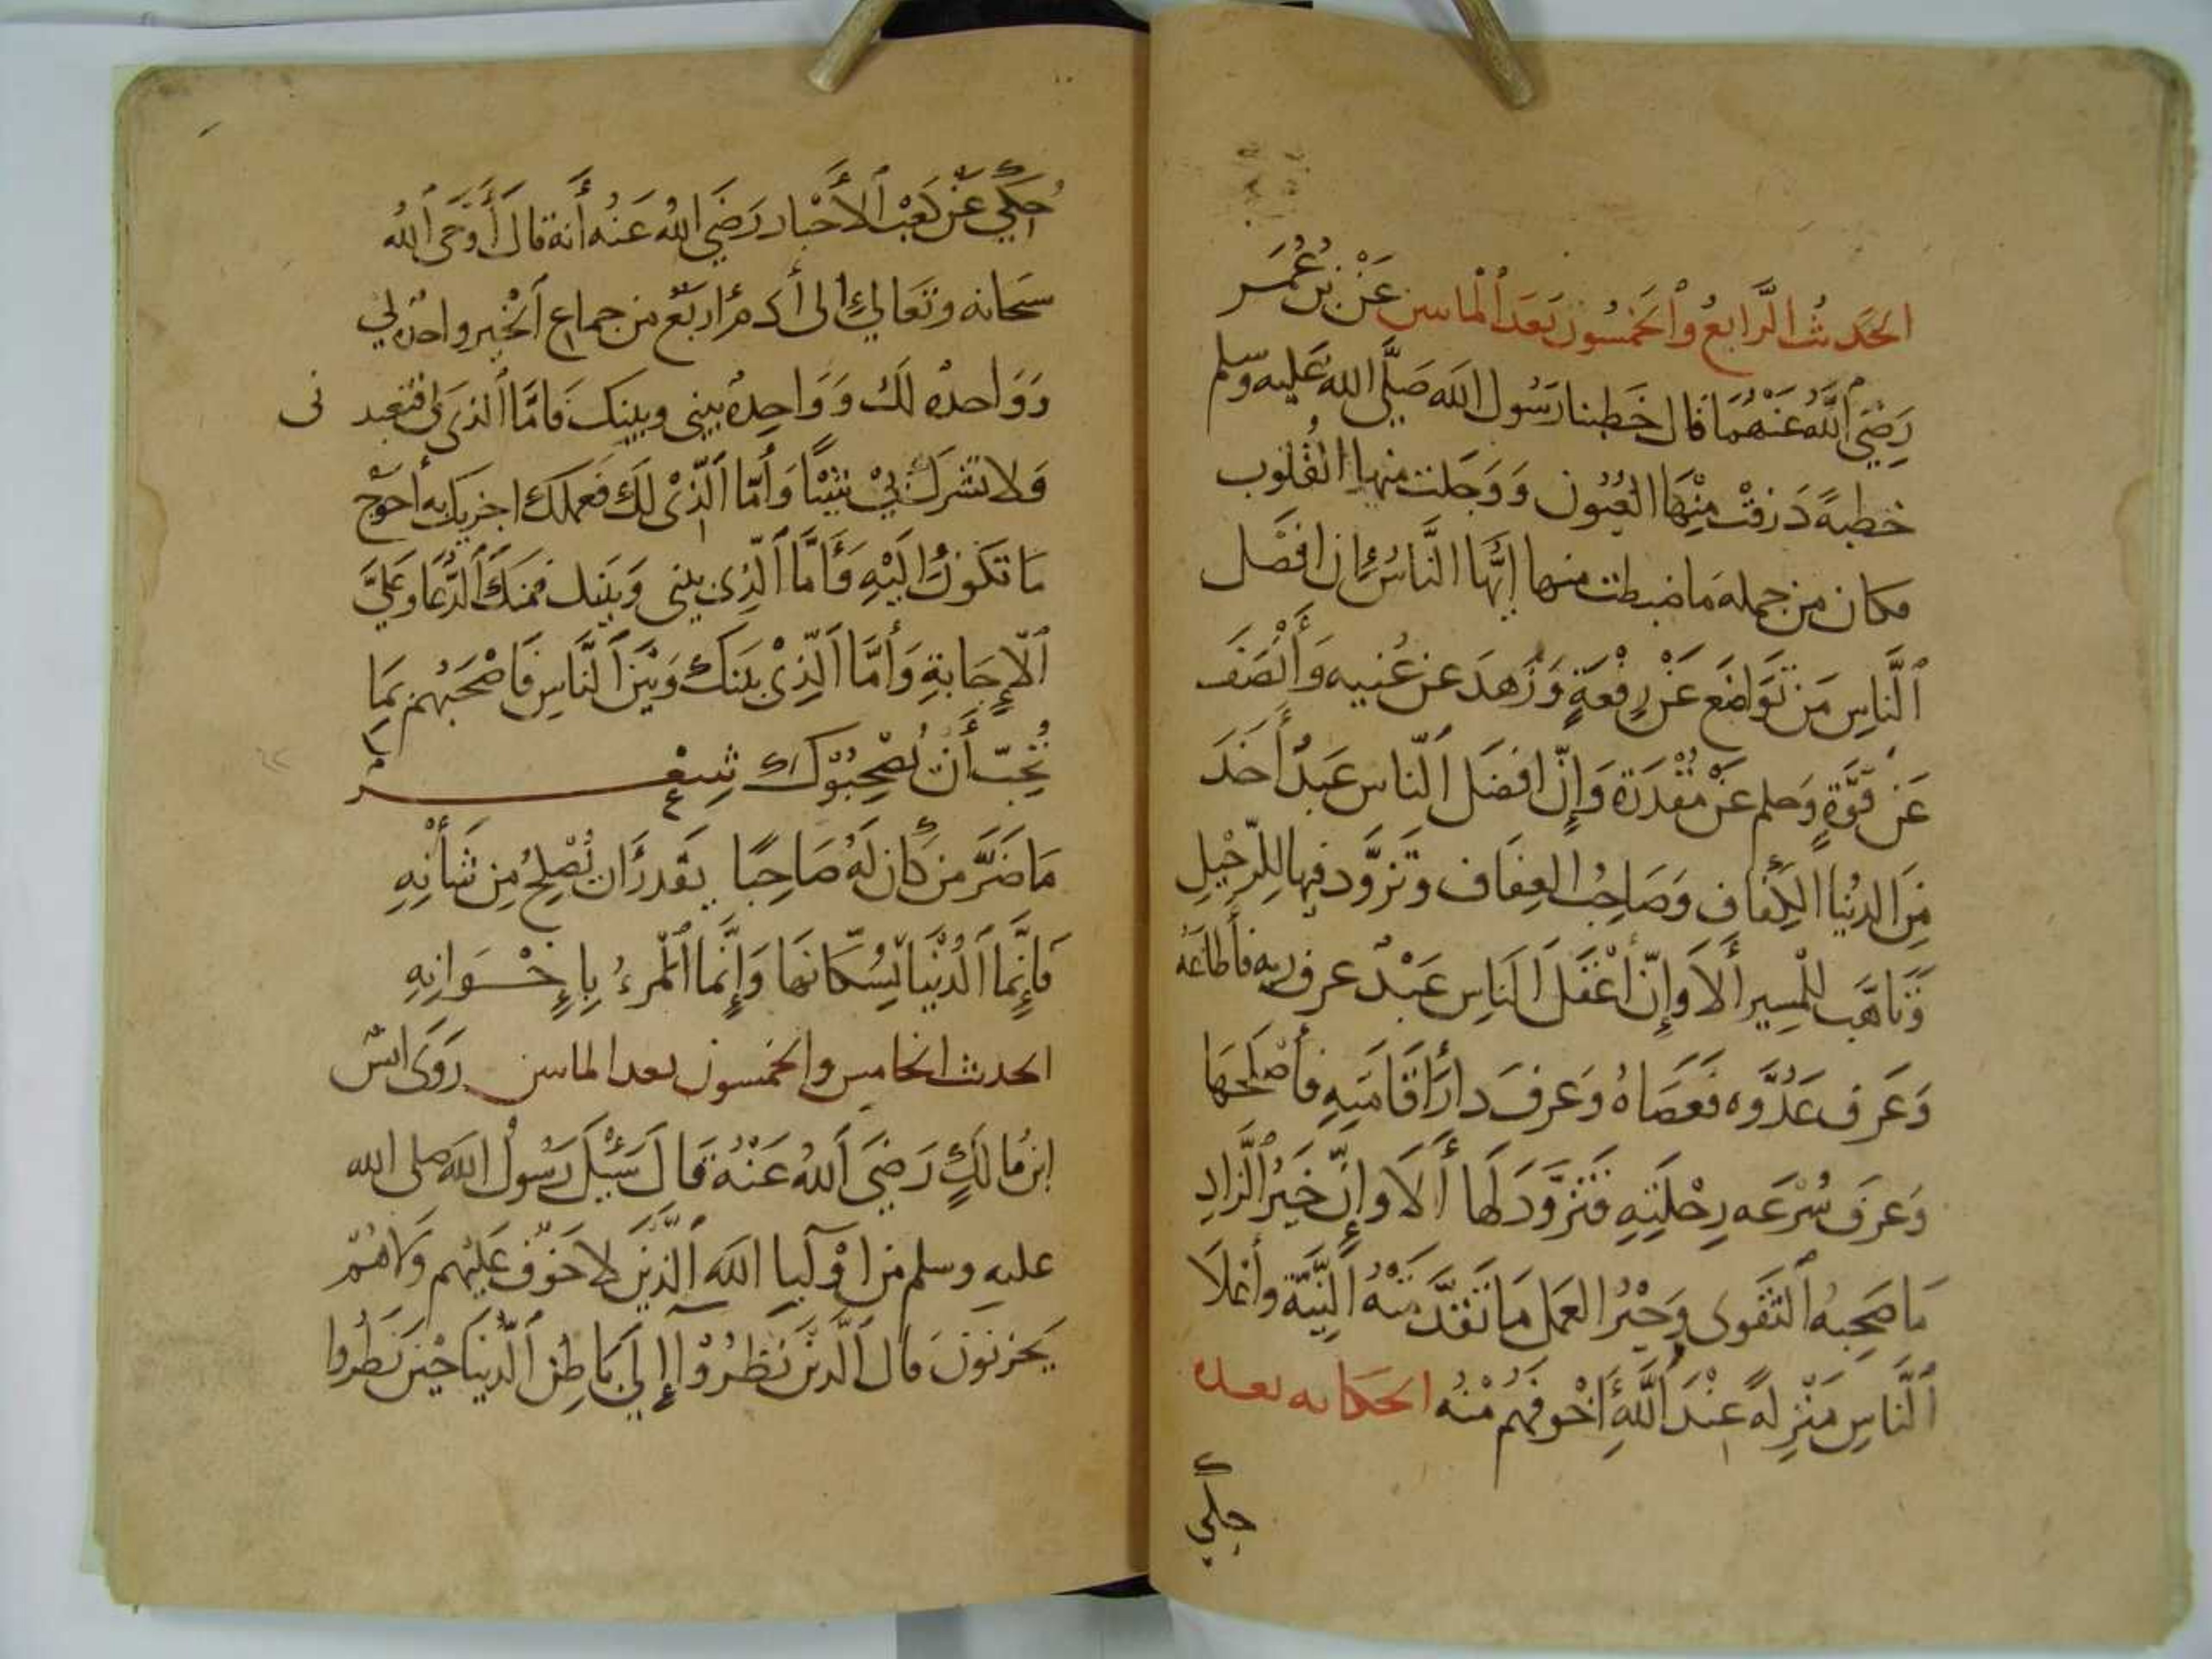 الحَدِيثُ الرَّابِعُ وَالْخَمْسُونَ بَعْدَ الْمِاتَيْنِ عَنْ بْنِ عُمَرَ
رَضِيَ اللَّهُ عَنْهُمَا قَالَ خَطَبَنَا رَسُولُ اللَّه صَلَّى اللَّهُ عَلَيْهِ وَسَلَّم
خطبةً ذَرَفَتْ مِنْهَا العُيُون وَوَجِلَتْ منها القُلُوب
فكان من جملة ما ضبطت منها أيُّها النَّاسُ إن افضَل
النَّاسِ مَنْ تَوَاضَعَ عَنْ رِفْعَةٍ وَزَهدَ عن غُنيه وَأَنْصَفَ
عَنْ قوَّةٍ وَحلم عَنْ مَقْدَرَة وَإِنَّ افضَل النَّاس عَبدٌ أَخَذَ
مِنَ الدُّنْيَا الكَفَاف وَصَاحِبُ العِفَاف وَتَزَوَّد فيها للِرَّحِيل
وَتَأهَّبَ للْمسِير أَلَا وَإِنَّ أَعْقَلَ النَاسِ عَبْدٌ عرف ربه فأَطَاعَهُ
وَعَرَف عَدُوَّه فَعَصَاهُ وَعَرفَ دارَ اقَامَتِهِ فأَصْلَحَهَا
وَعَرَفَ سُرْعَه رِحْلَتِهِ فَتَزَوَّدَ لَها أَلَا وإِنَّ خَيْرَ الزَّادِ
مَا صَحِبهُ التَّقوى وَخَيْرُ العَمَل مَا تَقَدَّمَتْهُ النِّيَّة وأَعْلَا
النَّاسِ مَنْزِلَةً عِنْدَ اللَّهِ أَخْوفَهُم مِنْهُ الحكايه بعده
حكي
حُكِيَ عَنْ كَعْبِ الأَحْبَار رَضِيَ اللهُ عَنْهُ أَنهُ قال أَوْحَى اللهُ
سبحانه وتَعَالى إلى أدمَ اربَعٌ من جماع الخَير واحدة لي
وَوَاحدة لَكَ وَوَاحِدة بيني وبينكَ فَامَّا الذى لي فتعبدنى
وَلا تشرك بي شَيْئًا وَأَمَّا الَّذِى لَكَ فَعملكَ اجزيك به احوج
مَا تَكُونُ إلَيْهِ وَأَمَّا الَّذِى بيني وَبينك فمنكَ الدُّعَا وَعَلَيَّ
الاِجَابةِ وَأَمَّا الَّذِي بَينكَ وَبَيْنَ النَّاسِ فَاصْحَبْهُم بِمَا
تُحِبّ أَنْ يُصْحِبُوكَ شِعْر
مَا ضَرَّ مَنْ كَانَ لَهُ صَاحِبًا يَقْدرُ ان يُصْلِحَ مِن شَأنِهِ
فَإِنَّمَا الدُّنْيَا بسُكَّانهَا وَإِنَّمَا المَرءُ بِإِخْوَانِهِ
الحديث الخامس والخمسون بعد الماتين رَوَى انس
ابن مَالكٍ رَضِيَ اللهُ عَنْهُ قَالَ سُئِلَ رَسُولُ اللهِ صلى الله
عليه وسلم من اوْليا الله الَّذِينَ لا خَوْفٌ عَلَيْهِم وَلا هُمْ
يَحْزَنُونَ قال الَّذينَ نَظَرُوْا إِلَى بَاطِنِ الدُّنيَا حِينَ نَظَرُوا